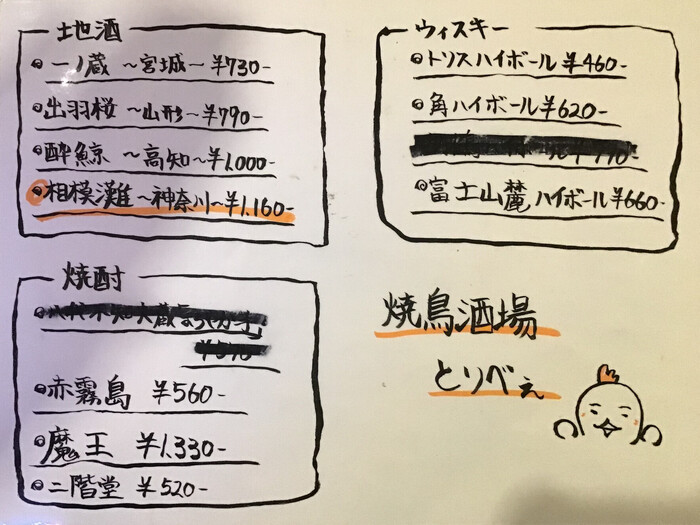 地酒
一ノ蔵 ～宮城～ ¥730-
出羽桜 ～山形～ ¥790-
酔鯨 ～高知～ ¥1.000-
相模灘～神奈川～¥1.160-
ウィスキー
トリスハイボール ¥460-
角ハイボール¥620-
富士山麓ハイボール¥660-
焼酎
赤霧島 ¥560-
魔王 ¥1.330-
二階堂 ¥520-
焼鳥酒場
とりべぇ